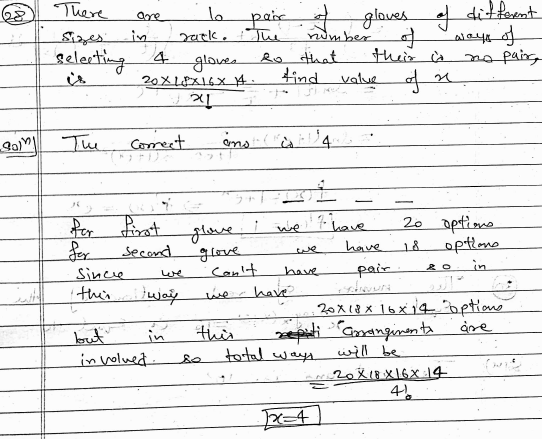 28) There are 10 pair of gloves of different
sizes in rack. The number of ways of
selecting 4 gloves so that their is no pair,
is 20×18×16×14 / x! . find value of x
Solⁿ] The correct ans is 4
— — — —
for first glove we have 20 options
for second glove we have 18 options
Since we can't have pair so in
this way we have
20×18×16×14 options
but in this arrangments are
involved. so total ways will be
= 20×18×16×14 / 4!
x=4